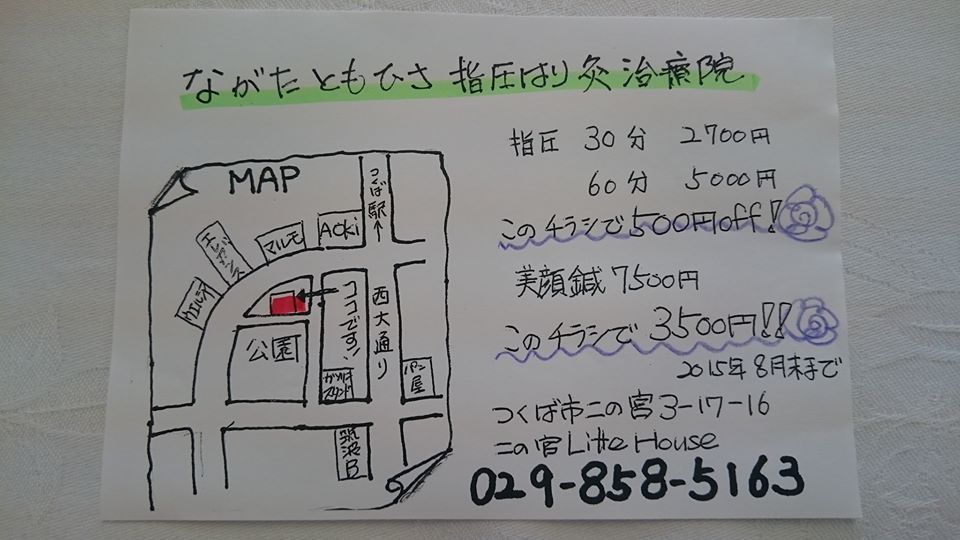 ながたともひさ 指圧はり灸治療院
指圧 30分 2700円
60分 5000円
このチラシで500円off!
美顔鍼 7500円
このチラシで 3500円!!
2015年8月末まで
つくば市二の宮3-17-16
二の宮Little House
029-858-5163
MAP
つくば駅
↑
Aoki
マルモ
エレガンス
ウエルシア
ココです!
西大通り
公園
ガソリン
スタンド
パン
屋